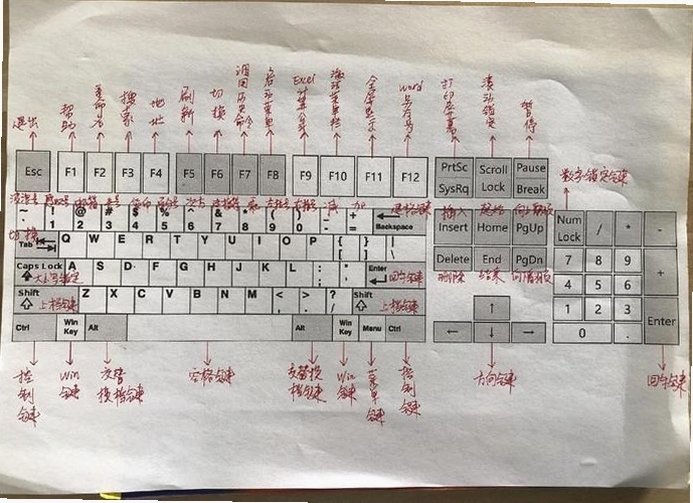 退出 帮助 重命名 搜索 地址 刷新 切换 调用历史命令 启动菜单 Excel计算公式 激活菜单栏 全屏显示 word另存为 打印屏幕 滚动锁定 暂停
Esc F1 F2 F3 F4 F5 F6 F7 F8 F9 F10 F11 F12 PrtSc SysRq Scroll Lock Pause Break 数字锁定键
波浪号 感叹号 井号 货币 百分号 次方 连接符 乘 左括号 右括号 减 加 退格键 插入 起始 向上翻页
~ ! @ # $ % ^ & * ( ) _ + Backspace Insert Home PgUp Num Lock / * -
1 2 3 4 5 6 7 8 9 0 - =
切换 Tab Q W E R T Y U I O P { [ } ] Delete End PgDn 7 8 9 +
删除 结束 向下翻页
Caps Lock 大小写锁定 A S D F G H J K L : ; " ' Enter 回车键 4 5 6
Shift 上档键 Z X C V B N M < , > . ? / Shift 上档键 ↑ 1 2 3 Enter
Ctrl Win Key Alt Alt Win Key Manu Ctrl ← ↓ → 0 .
控制键 Win键 交替换档键 空格键 交替换档键 Win键 菜单键 控制键 方向键 回车键